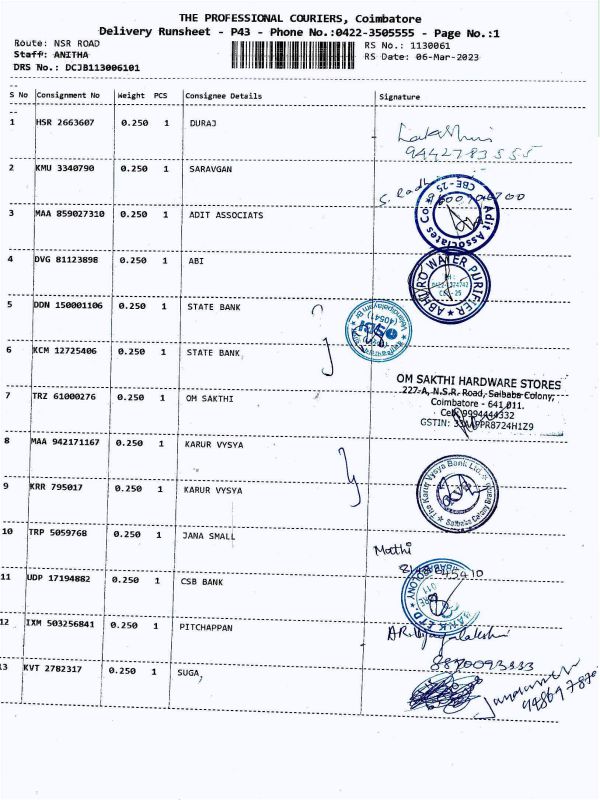 THE PROFESSIONAL COURIERS, Coimbatore
Delivery Runsheet - P43 - Phone No.:0422-3505555 - Page No.:1
Route: NSR ROAD
RS No.: 1130061
Staff: ANITHA
RS Date: 06-Mar-2023
DRS No.: DCJB113006101
S No Consignment No Weight PCS Consignee Details Signature
1 HSR 2663607 0.250 1 DURAJ
9442783555
2 KMU 3340790 0.250 1 SARAVGAN
3 MAA 859027310 0.250 1 ADIT ASSOCIATS
Adit Associates CBE-25
4 DVG 81123898 0.250 1 ABI
WATER PURIFIER
5 DDN 150001106 0.250 1 STATE BANK
SBI
6 KCM 12725406 0.250 1 STATE BANK
OM SAKTHI HARDWARE STORES
7 TRZ 61000276 0.250 1 OM SAKTHI
227-A, N.S.R. Road, Saibaba Colony,
Coimbatore - 641 011.
Cell: 9994444332
GSTIN:
8 MAA 942171167 0.250 1 KARUR VYSYA
The Karur Vysya Bank Ltd. Saibaba Colony
9 KRR 795017 0.250 1 KARUR VYSYA
10 TRP 5059768 0.250 1 JANA SMALL
Mathi
11 UDP 17194882 0.250 1 CSB BANK
12 IXM 503256841 0.250 1 PITCHAPPAN
13 KVT 2782317 0.250 1 SUGA,